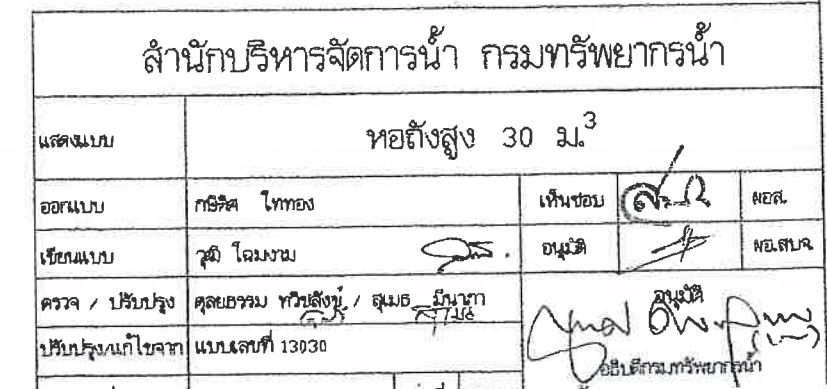 สำนักบริหารจัดการน้ำ กรมทรัพยากรน้ำ
แสดงแบบ หอถังสูง 30 ม.3
ออกแบบ ไททอง เห็นชอบ ผอส.
เขียนแบบ วุฒิ โฉมงาม อนุมัติ ผอ.สบจ.
ตรวจ / ปรับปรุง ดุลยธรรม ทวิชสังข์ / สุเมธ มีนาภา อนุมัติ
ปรับปรุง/แก้ไขจาก แบบเลขที่ 13030
อธิบดีกรมทรัพยากรน้ำ